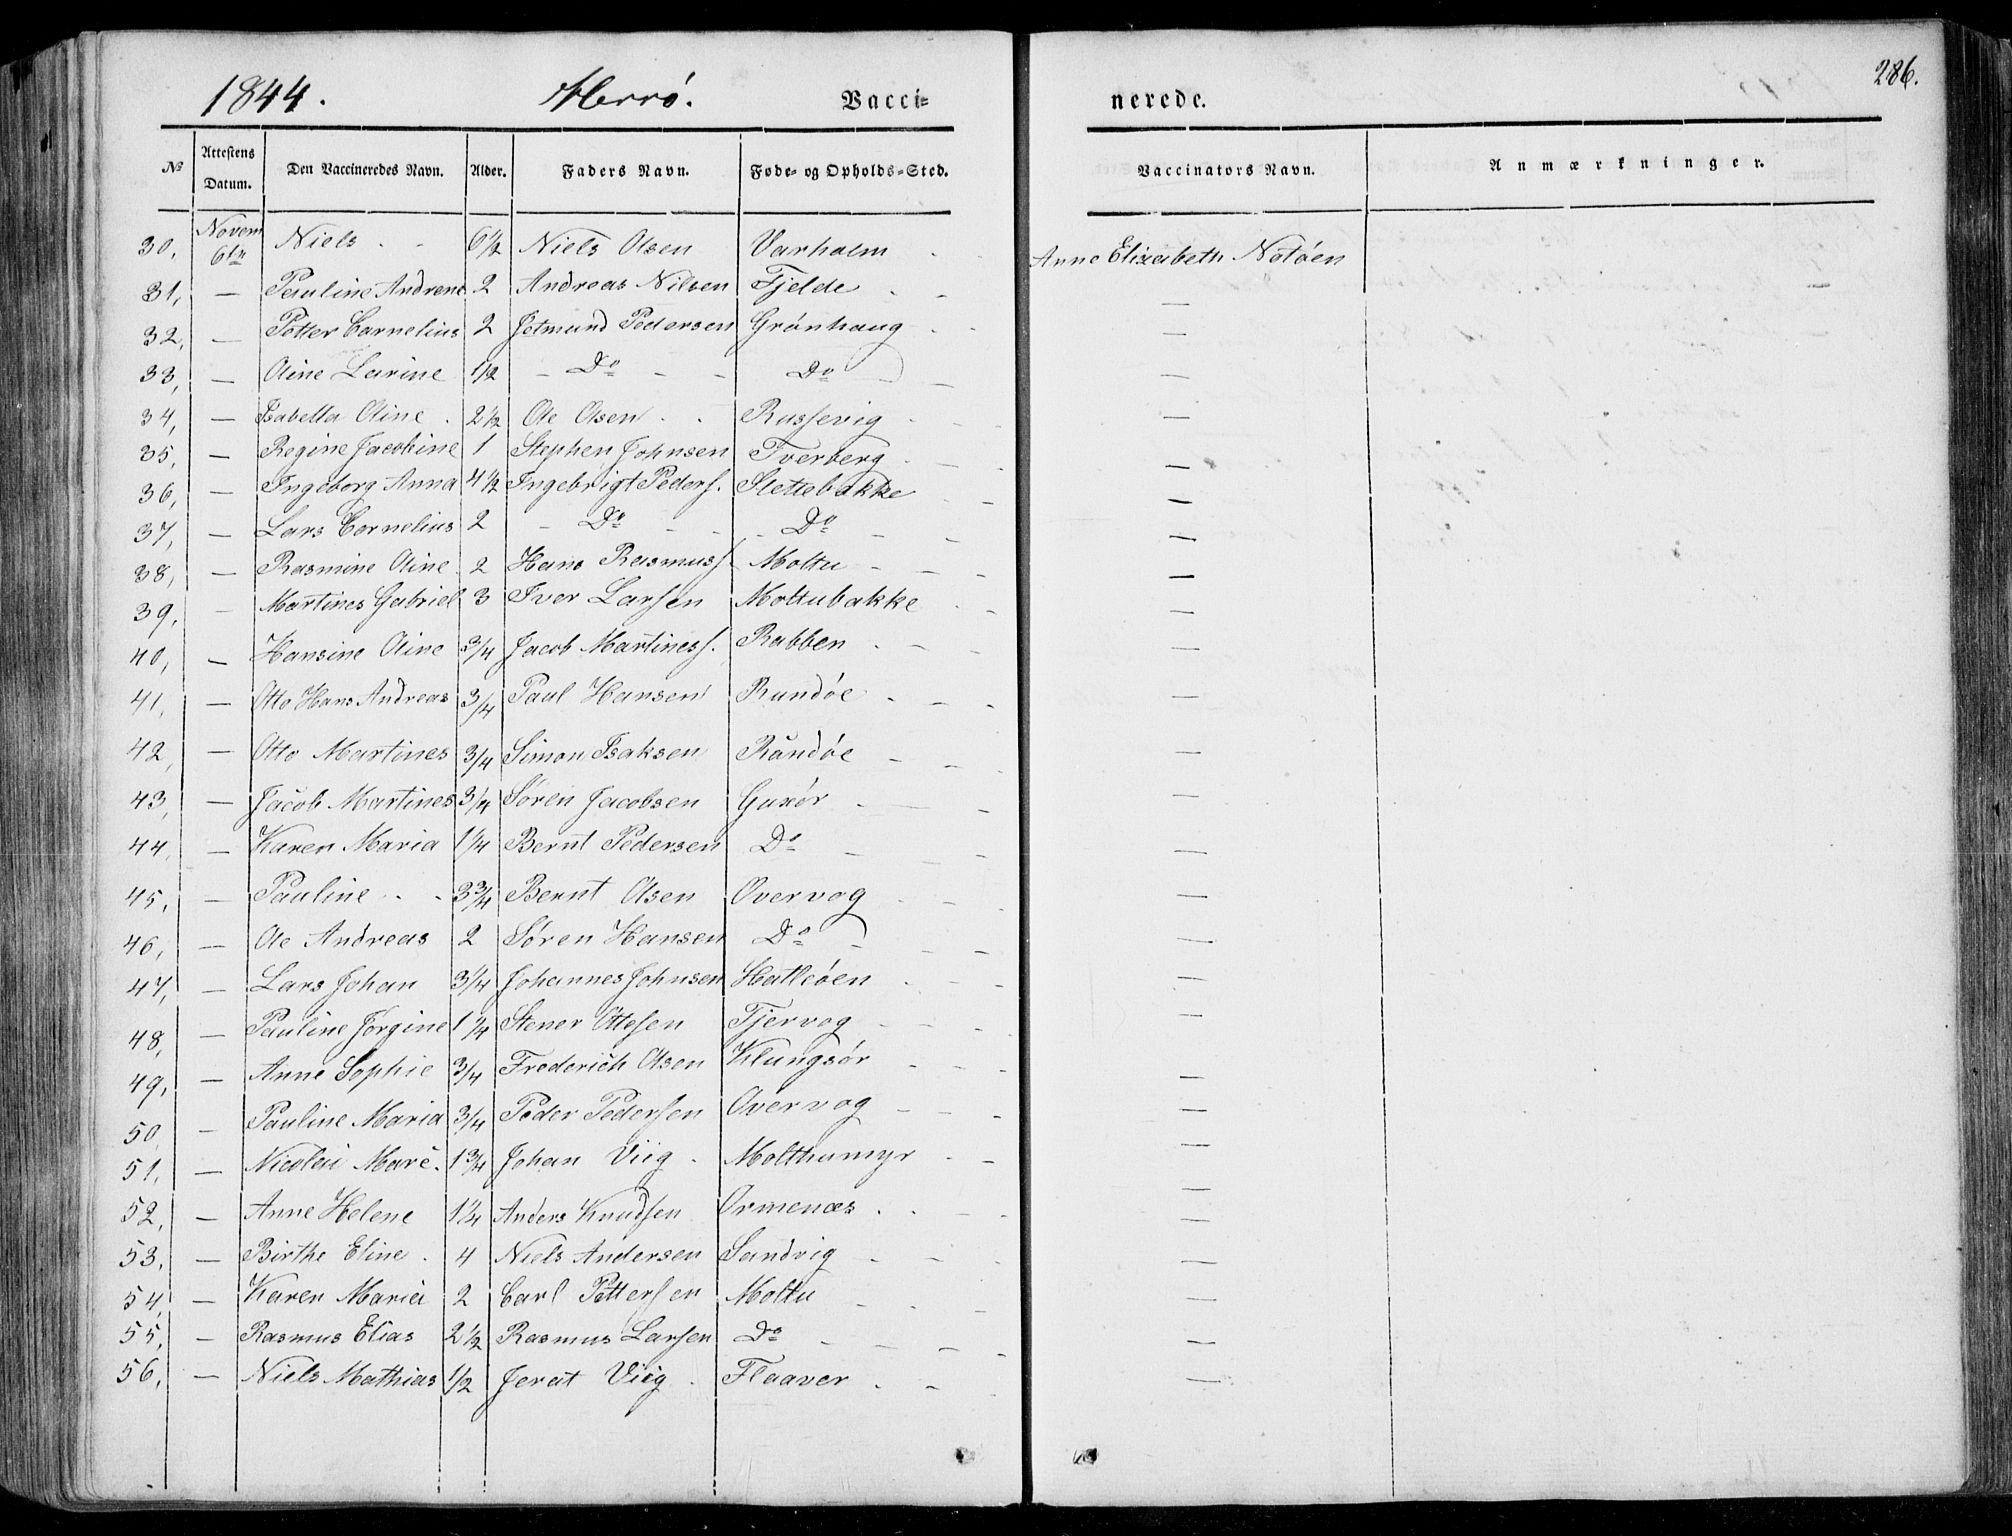 1844. Herrö. Vacci= nerede. 286.
No Attestens Datum. Den Vaccineredes Navn. Alder. Faders Navn. Føde= og Opholds=Sted. Vaccinators Navn. Anmærkninger.
30, Novem 6te Niels 6½ Niels Olsen Varholm Anne Elizabeth Notøen
31, — Pauline Andrene 2 Andreas Nilsen Fjelde —
32, — Petter Cornelius 2 Jetmund Pedersen Grønhaug —
33, — Oline Larine ½ Do Do —
34, — Isabella Oline 2½ Ole Olsen Russevig —
35, — Regine Jacobine 1 Stephen Johnsen Tverberg —
36, — Ingeborg Anna 4½ Ingebrigt Peders. Slettebakke —
37, — Lars Cornelius 2 Do Do —
38, — Rasmine Oline 2 Hans Rasmuss. Moltu —
39, — Martines Gabriel 3 Iver Larsen Moltubakke —
40, — Hansine Oline ¾ Jacob Martiness. Rabben —
41, — Otto Hans Andreas ¾ Paul Hansen Rundøe —
42, — Otto Martines ¾ Simon Isaksen Rundøe —
43, — Jacob Martines 3¼ Søren Jacobsen Gurør —
44, — Karen Maria 1¼ Bernt Pedersen Do —
45, — Pauline 3¾ Bernt Olsen Overvog —
46, — Ole Andreas 2 Søren Hansen Do —
47, — Lars Johan 3¼ Johannes Johnsen Hatløen —
48, — Pauline Jørgine 1¼ Stener Ottesen Tjervog —
49, — Anne Sophie ¾ Frederich Olsen Klungsør —
50, — Pauline Maria ¾ Peder Pedersen Overvog —
51, — Nicolai Mare. 1¾ Johan Viig Molthumyr —
52, — Anne Helene 1¼ Anders Knudsen Ormenæs —
53, — Birthe Eline 4 Niels Andersen Sandvig —
54, — Karen Maria 2 Carl Pettersen Moltu —
55, — Rasmus Elias 2½ Rasmus Larsen Do —
56, — Niels Mathias ½ Jerat Viig Flaaver —